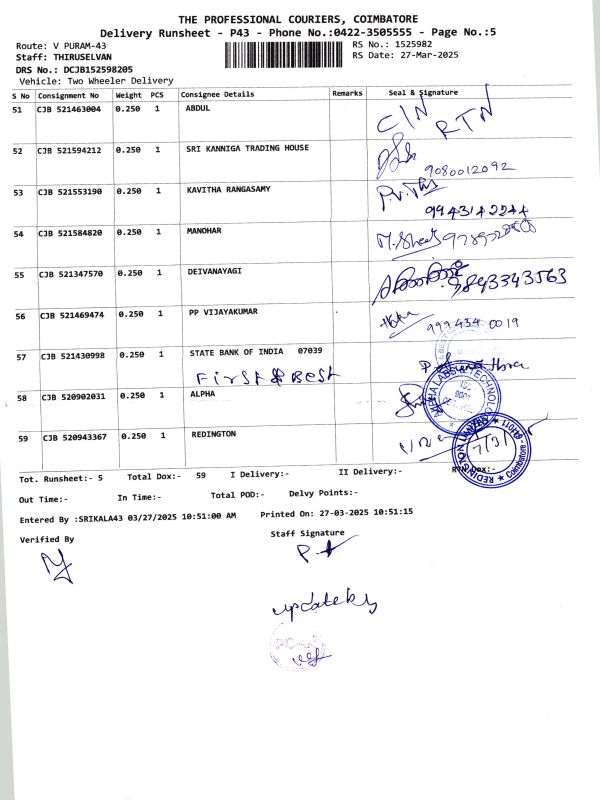 THE PROFESSIONAL COURIERS, COIMBATORE
Delivery Runsheet - P43 - Phone No.:0422-3505555 - Page No.:5
Route: V PURAM-43 RS No.: 1525982
Staff: THIRUSELVAN RS Date: 27-Mar-2025
DRS No.: DCJB152598205
Vehicle: Two Wheeler Delivery
S No Consignment No Weight PCS Consignee Details Remarks Seal & Signature
51 CJB 521463004 0.250 1 ABDUL C/N RTN
52 CJB 521594212 0.250 1 SRI KANNIGA TRADING HOUSE
9080012092
53 CJB 521553190 0.250 1 KAVITHA RANGASAMY
9943142244
54 CJB 521584820 0.250 1 MANOHAR
55 CJB 521347570 0.250 1 DEIVANAYAGI 9843343563
56 CJB 521469474 0.250 1 PP VIJAYAKUMAR
999434 0019
57 CJB 521430998 0.250 1 STATE BANK OF INDIA 07039
First & Best
58 CJB 520902031 0.250 1 ALPHA
ALPHA LABS & TECHNOLO
59 CJB 520943367 0.250 1 REDINGTON
REDINGTON LIMITED Coimbatore
Tot. Runsheet:- 5 Total Dox:- 59 I Delivery:- II Delivery:- RTN Dox:-
Out Time:- In Time:- Total POD:- Delvy Points:-
Entered By :SRIKALA43 03/27/2025 10:51:00 AM Printed On: 27-03-2025 10:51:15
Verified By Staff Signature
update by